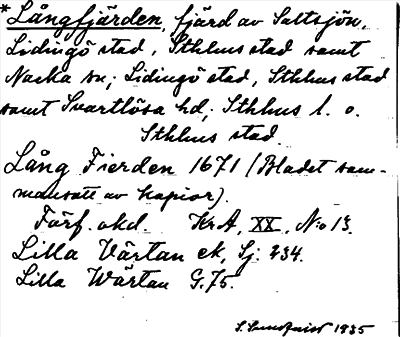 * Långfjärden, fjärd av Saltsjön,
Lidingö stad, Sthlms stad samt
Nacka sn; Lidingö stad, Sthlms stad
samt Svartlösa hd; Sthlms l. o.
Sthlms stad.
Lång Fierden 1671 (Bladet sam-
mansatt av kopior).
Förf. okd. KrA, XX, N:o 13.
Lilla Värtan ek, Sj. 234.
Lilla Wärtan G.75.
1935